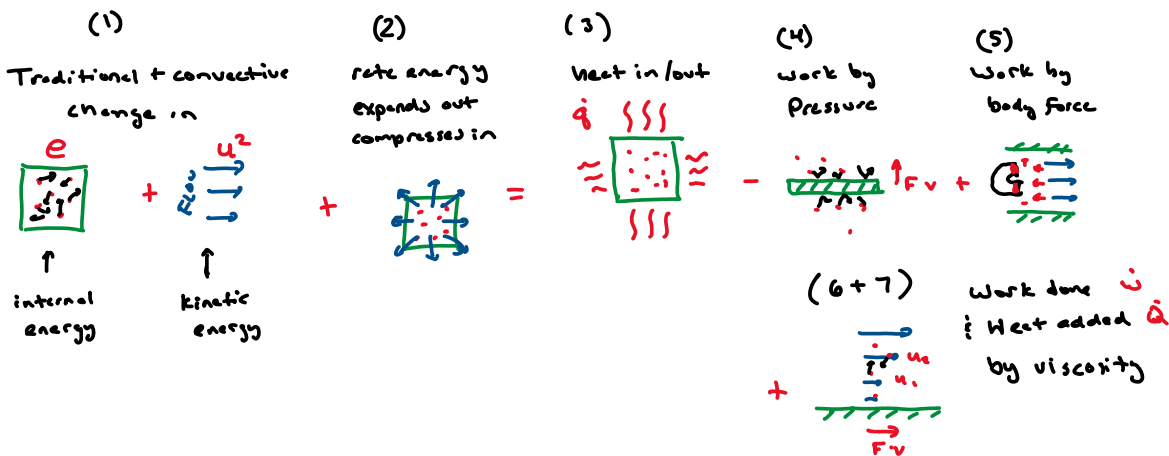 (1)
Traditional + convective
change in
e
+
u²
Flow
internal
energy
kinetic
energy
+
(2)
rate energy
expands out
compressed in
=
(3)
heat in/out
q̇
-
(4)
work by
Pressure
F v
+
(5)
work by
body force
G
+
(6+7)
u₂
u₁
F·v
work done ẇ
& Heat added Q̇
by viscosity